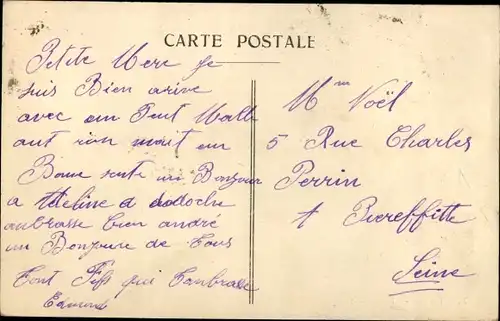 CARTE POSTALE
Petite Mere Je
suis Bien arive
avec un Tent
aut mait en
Bonne sente un Bonjour
a Adeline a dodoche
anbrasse bien andré
un Bonjoure de Tous
Tont Fils qui Tanbrasse
Edmond
Mme Noël
5 Rue Charles
Perrin
à Piereffitte
Seine